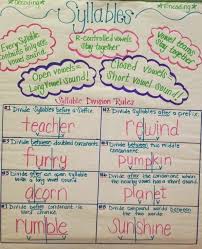 Decoding
Syllables
Encoding
Every Syllable
contains only one
vowel sound.
R-controlled vowels
stay together
Vowel teams
stay together
Open vowels =
Long vowel sound!
Closed vowels =
Short vowel sound!
Syllable Division Rules
#1 Divide syllables before a suffix.
teacher
#2 Divide syllables after a prefix.
rewind
Divide between doubled consonants.
furry
Divide between two middle
consonants.
pumpkin
Divide after an open syllable
with a long vowel sound.
acorn
Divide after the consonant when
the nearby vowel has a short sound.
planet
Divide before consonant
rumble
Divide compound words between
the two words.
Sunshine